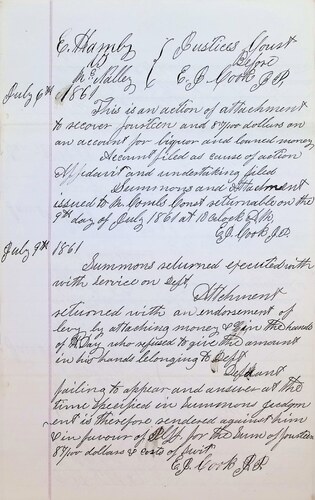 E. Hamby } Justices Court
vs } Before
McNalley } E. J. Cook J.P.
July 6th 1861
This is an action of attachment
to recover fourteen and 87/100 dollars on
an account for liquor and loaned money
Account filed as cause of action
Affidavit and undertaking filed
Summons and Attachment
issued to McCombs Const returnable on the
9th day of July 1861 at 1 Oclock P.M.
E. J. Cook J.P.
July 9th 1861
Summons returned executed with
with service on Deft
Attchment
returned with an endorsement of
levy by attaching money &c in the hands
of Day who refused to give the amount
in his hands belonging to Deft
Defendant
failing to appear and answer at the
time specified in Summons judgm
ent is therefore rendered against him
& in favour of Plff. for the Sum of fourteen
87/100 dollars & costs of suit
E. J. Cook J.P.